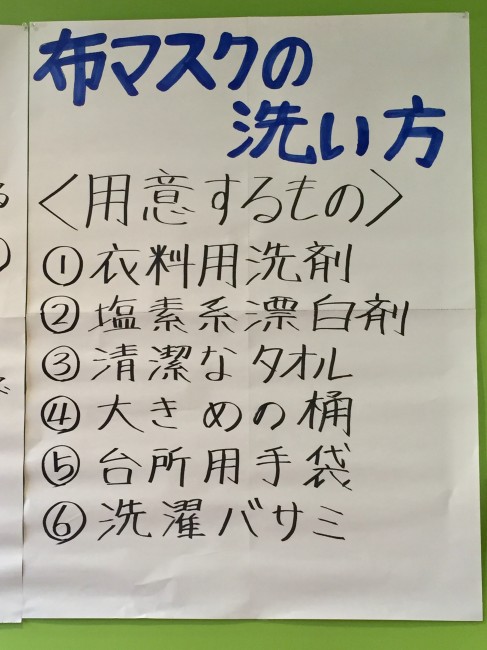 布マスクの
洗い方
〈用意するもの〉
①衣料用洗剤
②塩素系漂白剤
③清潔なタオル
④大きめの桶
⑤台所用手袋
⑥洗濯バサミ